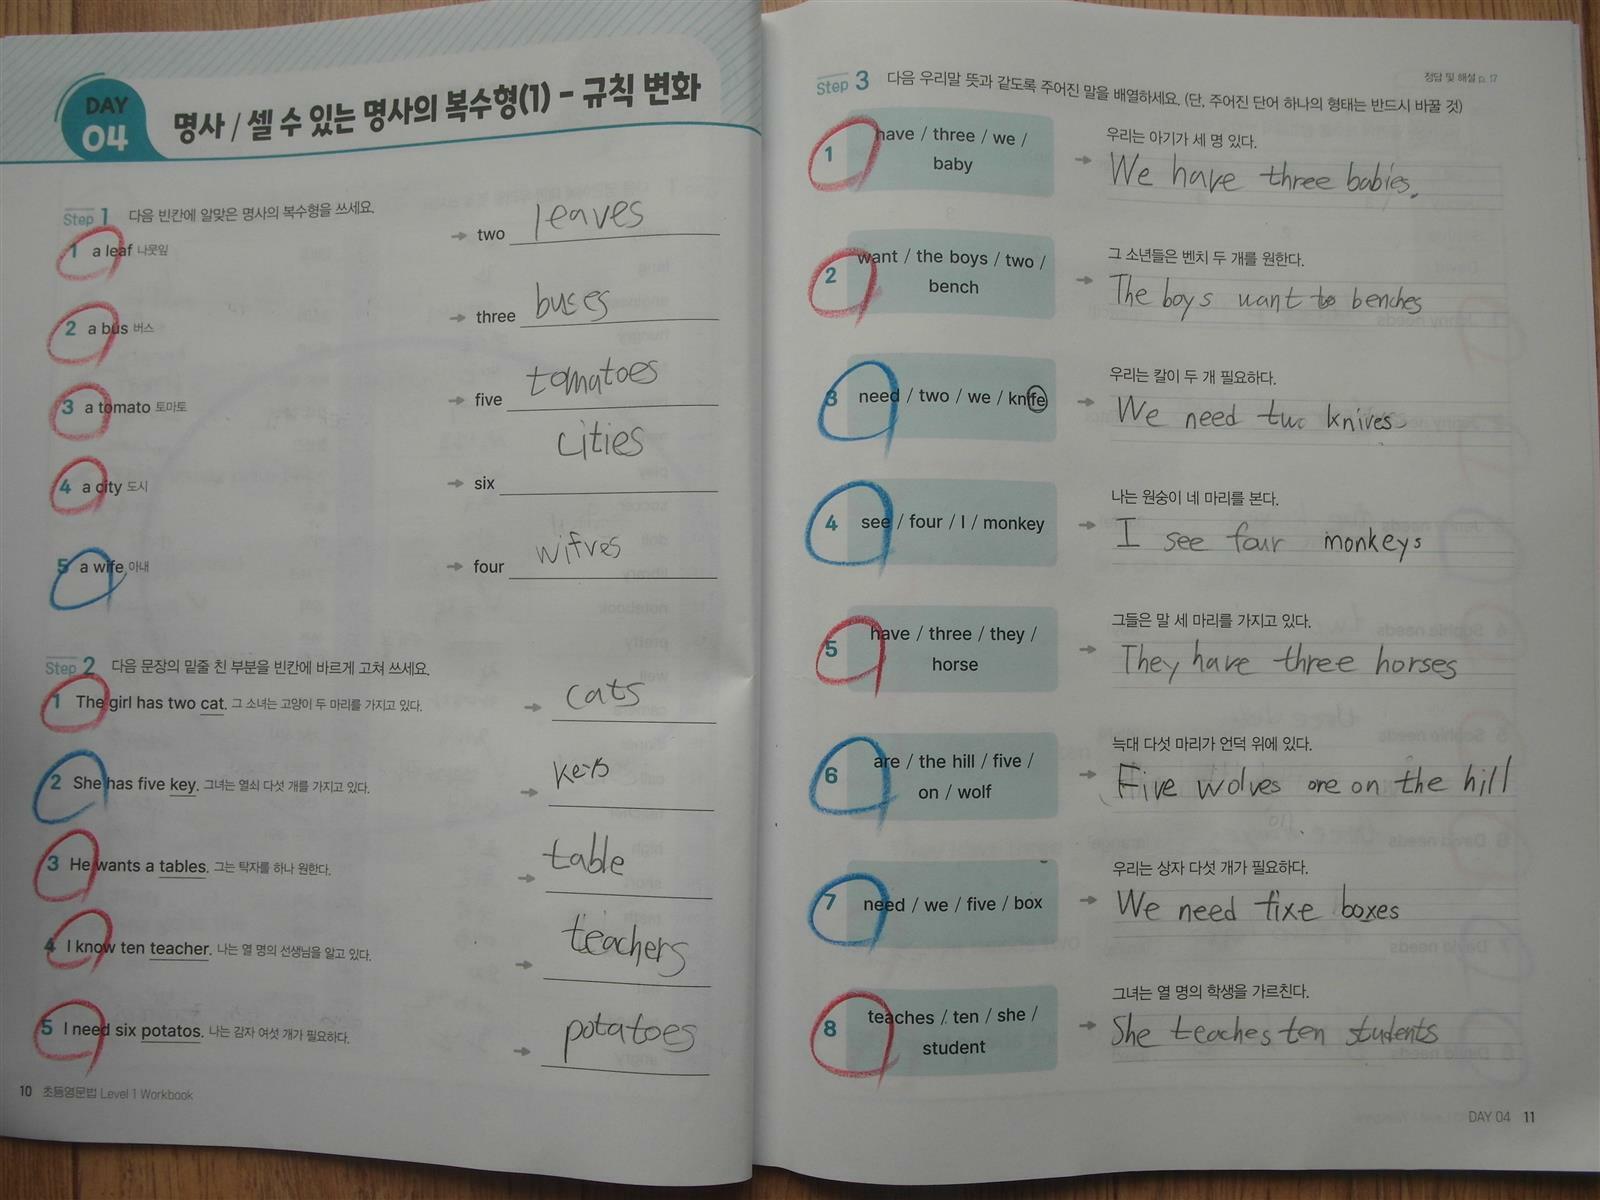 DAY
04
명사 / 셀 수 있는 명사의 복수형(1) - 규칙 변화
Step 1 다음 빈칸에 알맞은 명사의 복수형을 쓰세요.
1 a leaf 나뭇잎 → two leaves
2 a bus 버스 → three buses
3 a tomato 토마토 → five tomatoes
4 a city 도시 → six cities
5 a wife 아내 → four wifves
Step 2 다음 문장의 밑줄 친 부분을 빈칸에 바르게 고쳐 쓰세요.
1 The girl has two cat. 그 소녀는 고양이 두 마리를 가지고 있다. → cats
2 She has five key. 그녀는 열쇠 다섯 개를 가지고 있다. →
3 He wants a tables. 그는 탁자를 하나 원한다. → table
4 I know ten teacher. 나는 열 명의 선생님을 알고 있다. → teachers
5 I need six potatos. 나는 감자 여섯 개가 필요하다. → potatoes
10 초등영문법 Level 1 Workbook
정답 및 해설 p. 17
Step 3 다음 우리말 뜻과 같도록 주어진 말을 배열하세요. (단, 주어진 단어 하나의 형태는 반드시 바꿀 것)
1 have / three / we /
baby
우리는 아기가 세 명 있다.
→ We have three babies.
2 want / the boys / two /
bench
그 소년들은 벤치 두 개를 원한다.
→ The boys want to benches
3 need / two / we / knife
우리는 칼이 두 개 필요하다.
→ We need two knives
4 see / four / I / monkey
나는 원숭이 네 마리를 본다.
→ I see four monkeys
5 have / three / they /
horse
그들은 말 세 마리를 가지고 있다.
→ They have three horses
6 are / the hill / five /
on / wolf
늑대 다섯 마리가 언덕 위에 있다.
→ Five wolves are on the hill
7 need / we / five / box
우리는 상자 다섯 개가 필요하다.
→ We need fixe boxes
8 teaches / ten / she /
student
그녀는 열 명의 학생을 가르친다.
→ She teaches ten students
DAY 04 11